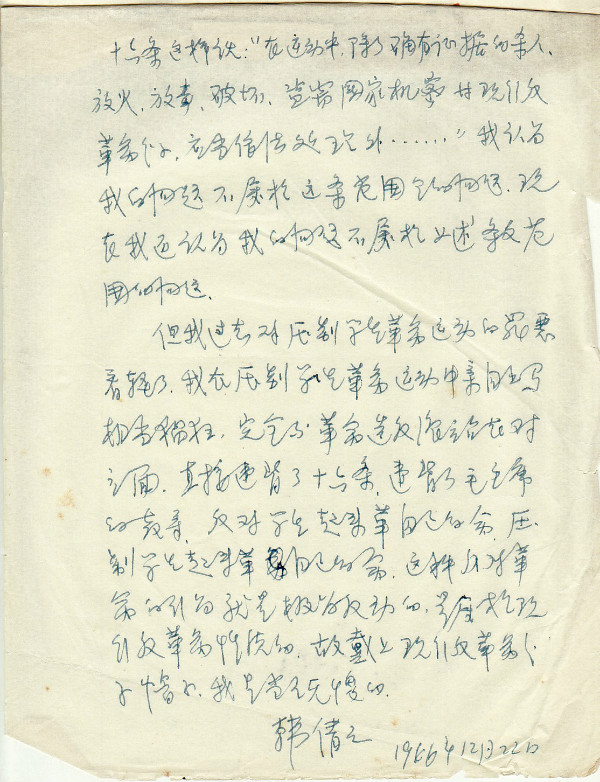 十六条这样说：“在运动中，除了确有证据的杀人、
放火、放毒、破坏、盗窃国家机密等现行反
革命分子，应当依法处理外……”我认为
我的问题不属於这条范围的问题。现
在我还认为我的问题不属於上述条文范
围的问题。
但我过去对压制学生革命运动的罪恶
看轻了。我在压制学生革命运动中亲自上马
相当猖狂，完全与革命造反派站在对
立面，直接违背了十六条，违背了毛主席
的教导，反对学生起来革自己的命，压
制学生起来革自己的命，这种反对革
命的行为就是极为反动的，是属於现
行反革命性质的，故戴上现行反革命分
子帽子，我是当之无愧的。
韩倩之 1966年12月22日